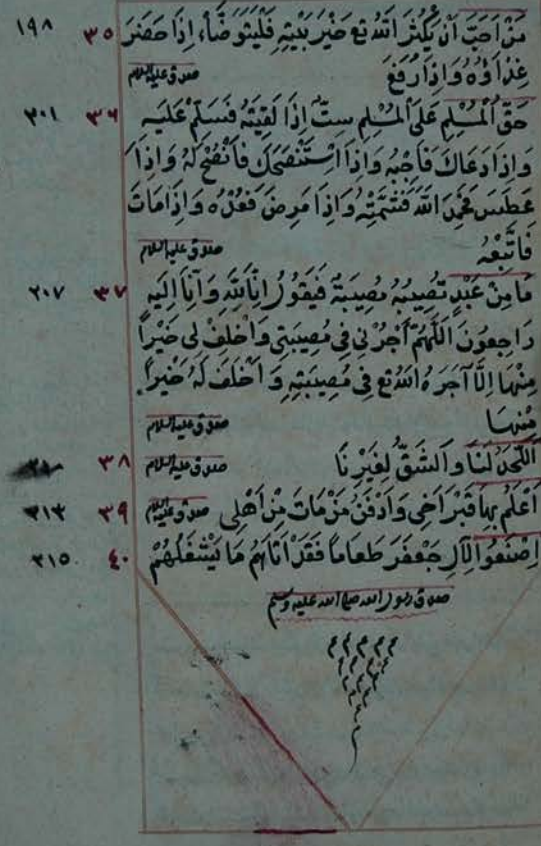 مَنْ اَحَبَّ اَنْ يَكْثُرَ اَللهُ تع خَيْرَ بَيْتِهِ فَلْيَتَوَضَّأْ، اِذَا حَضَرَ ٣٥ ١٩٨
غِذَاؤُهُ وَاِذَا رُفِعَ صدق عليه السلام
حَقُّ الْمُسْلِمِ عَلَى الْمُسْلِمِ سِتٌّ اِذَا لَقِيتَهُ فَسَلِّمْ عَلَيْهِ ٣٦ ٢٠١
وَاِذَا دَعَاكَ فَاَجِبْهُ وَاِذَا اسْتَنْصَحَكَ فَانْصَحْ لَهُ وَاِذَا
عَطَسَ فَحَمِدَ اللهَ فَشَمِّتْهُ وَاِذَا مَرِضَ فَعُدْهُ وَاِذَا مَاتَ
فَاتَّبِعْهُ صدق عليه السلام
مَا مِنْ عَبْدٍ تُصِيبُهُ مُصِيبَةٌ فَيَقُولُ اِنَّا لِلّهِ وَاِنَّا اِلَيْهِ ٣٧ ٢٠٧
رَاجِعُونَ اَللّهُمَّ آجُرْنِي فِي مُصِيبَتِي وَاخْلِفْ لِي خَيْراً
مِنْهَا اِلَّا آجَرَهُ اللهُ تع فِي مُصِيبَتِهِ وَ اَخْلَفَ لَهُ خَيْراً
مِنْهَا صدق عليه السلام
اَللَّحْدُ لَنَا وَالشَّقُّ لِغَيْرِنَا صدق عليه السلام ٣٨
اَعْلَمُ بِهَا قَبْرَ اَخِي وَاَدْفِنُ مَنْ مَاتَ مِنْ اَهْلِي صدق عليه السلام ٣٩ ٣١٣
اِصْنَعُوا لِآلِ جَعْفَرَ طَعَاماً فَقَدْ اَتَاهُمْ مَا يَشْغَلُهُمْ ٤٠ ٣١٥
صدق رسول الله صلى الله عليه وسلم